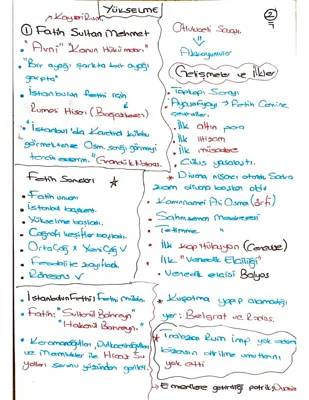 YÜKSELME
2
* Kayser-i Rum
① Fatih Sultan Mehmet
"Avni" "Kanun Hükümdarı"
"Bir ayağı şarkta bir ayağı
garpta"
• İstanbulun fethi için
Rumeli Hisarı (Boğazkesen)
• "İstanbul'da Kardinal külahı
görmektense Osm. sarığı görmeyi
tercih ederim." Grandük Notaras.
Fatih Sonrası
• Fatih unvanı
• İstanbul başkent.
• Yükselme başladı.
• Coğrafi keşifler başladı
• Orta Çağ X Yeni Çağ ✓
• Feodalite zayıfladı
• Rönesans ✓
İstanbulun Fethi / Fetih Müslüm.
• Fatih: "Sultanül Bahreyn"
"Hakanül Bahreyn."
• Karamanoğulları, Dulkadiroğulları
ve Memlükler ile Hicaz Su
yolları sorunu yüzünden gerildi.
Otlukbeli Savaşı
Akkoyunlular
Gelişmeler ve İlkler
• Topkapı Sarayı
• Ayasofyayı → Fatih Camine
çevirdiler.
• İlk altın para
• İlk
• İlk müsadere
• Cülus yasalaştı.
• Divana Nişancı atandı Sadra
zam divana başkan oldu
• Kanunname Ali Osman (örfi)
• Sahn-ı seman Medresesi
• İlk Kapitülasyon (Ceneviz)
• İlk "Venedik Elçiliği"
• Venedik elçisi Balyos
• Kuşatma yapıp alamadığı
yer: Belgrat ve Rodos.
• Trabzon Rum imp yok eden
bizansın diriltme umutlarını
yok etti